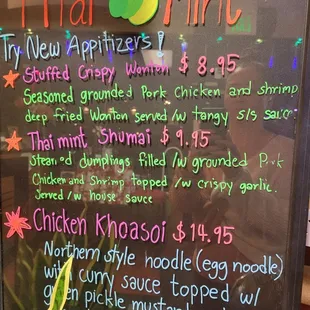 Thai Mint
Try New Appitizers!
Stuffed Crispy Wonton $8.95
Seasoned grounded Pork Chicken and shrimp
deep fried Wonton served /w tangy s/s sauce
Thai mint Shumai $9.95
Steamed dumplings filled /w grounded Pork
Chicken and Shrimp topped /w crispy garlic.
Served /w house sauce
Chicken Khoasoi $14.95
Northern style noodle (egg noodle)
with curry sauce topped w/
green pickle mustard